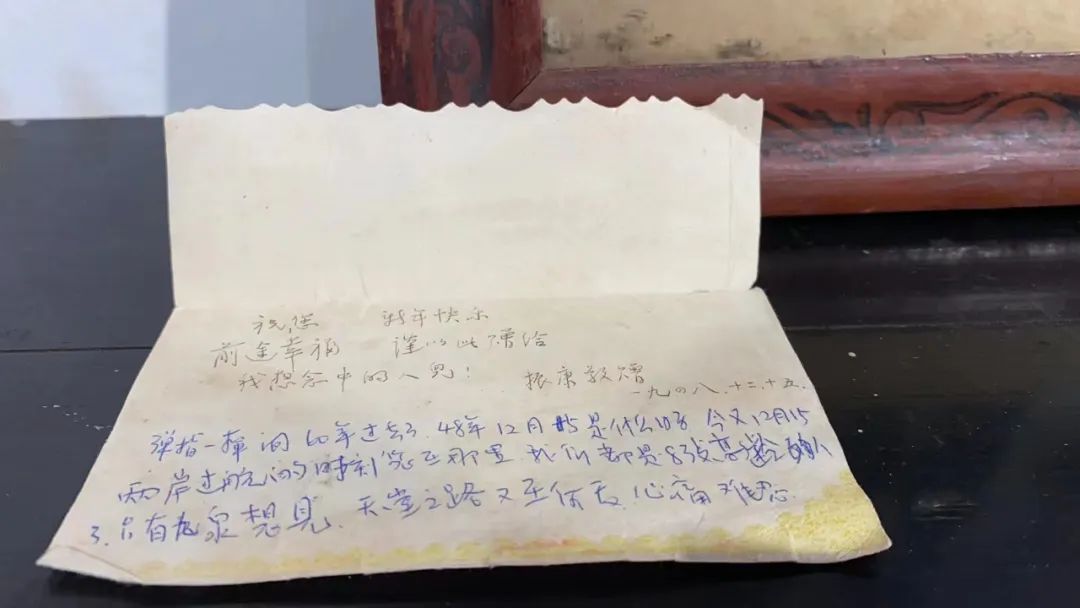 祝您 新年快乐
前途幸福 谨以此赠给
我想念中的人儿!
振康敬赠
一九四八.十二.十五.
弹指一挥间60年过去了.48年12月15是什么日子 今又12月15
两岸过航的时刻您在那里.我们都是83岁高龄的人
了.只有九泉想见.天堂之路又在何方.心痛难忍.